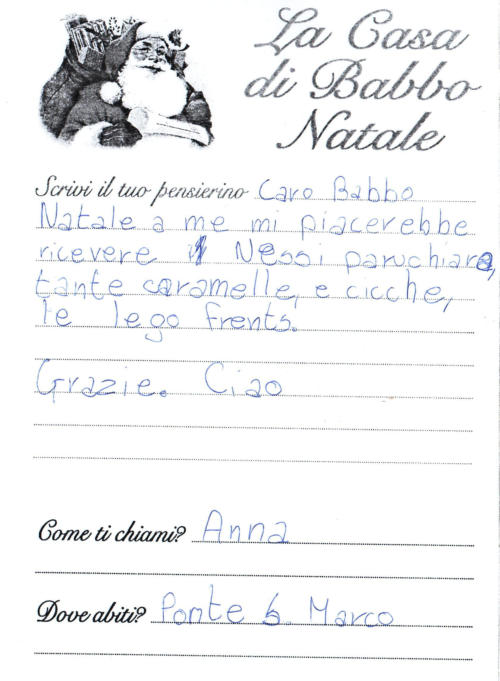 La Casa
di Babbo
Natale
Scrivi il tuo pensierino Caro Babbo
Natale a me mi piacerebbe
ricevere Nessi paruchiara,
tante caramelle, e cicche,
le lego frents.
Grazie. Ciao
Come ti chiami? Anna
Dove abiti? Ponte S. Marco